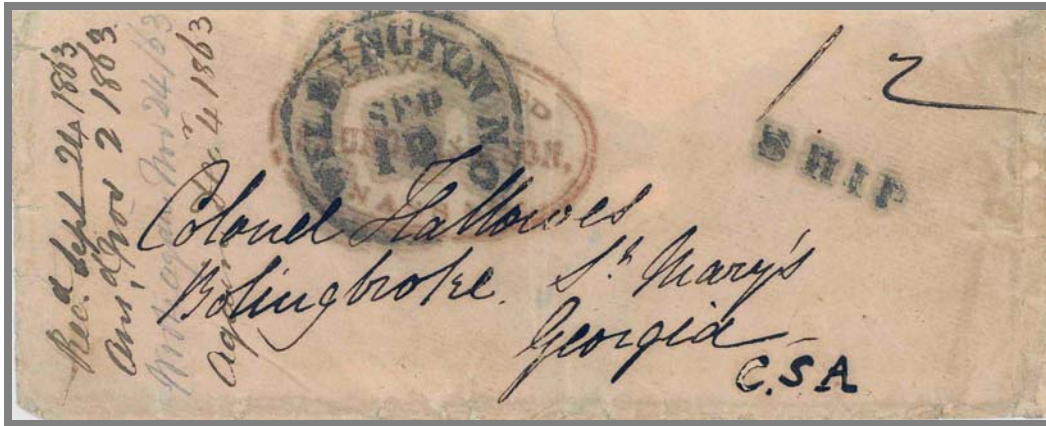 Rec.d Sept 24 1863
Ans.d Nov 2 1863
Wrote again Nov 24/63
Again 4 1863
WILMINGTON N.C
SEP
19
SON,
12
SHIP
Colonel Hallowes
Bolingbroke. St Mary's
Georgia
C.S.A